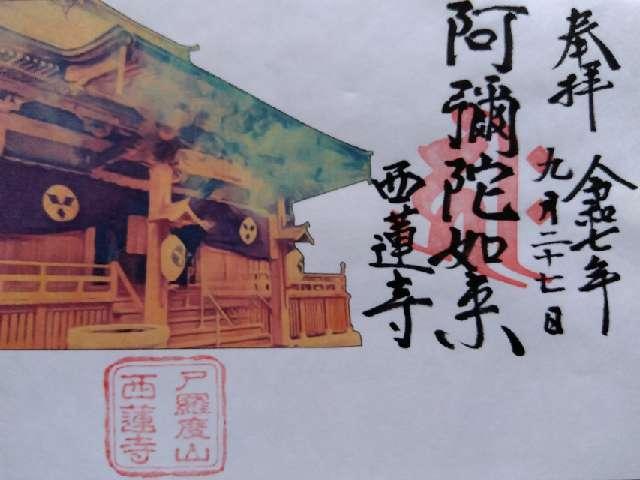 奉拝
令和七年
九月二十七日
阿彌陀如来
西蓮寺
尸羅度山
西蓮寺